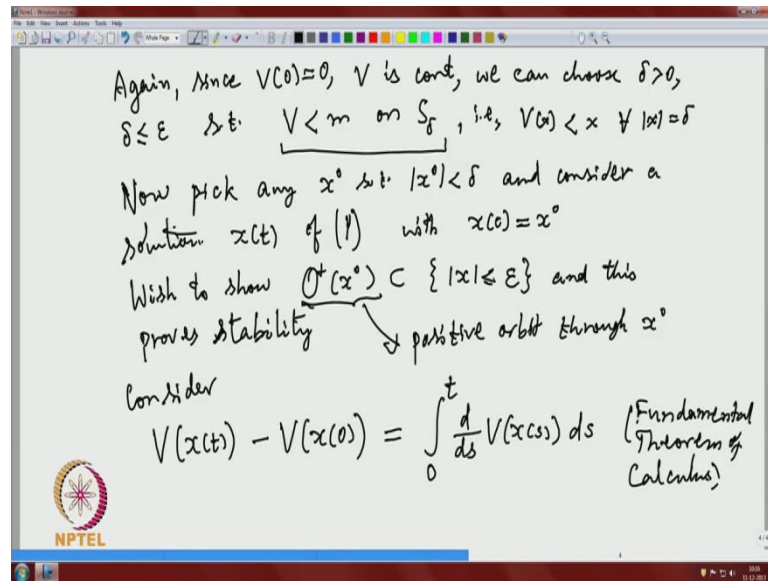 Note1 - Windows Journal
File Edit View Insert Actions Tools Help
Again, since V(0)=0, V is cont, we can choose δ>0,
δ≤ε s.t. V<m on S_δ, i.e, V(x) < x ∀ |x|=δ
Now pick any x⁰ s.t. |x⁰|<δ and consider a
solution x(t) of (1) with x(0)=x⁰
Wish to show O⁺(x⁰) ⊂ {|x|≤ε} and this
proves stability
positive orbit through x⁰
Consider
V(x(t)) - V(x(0)) = ∫₀ᵗ d/ds V(x(s)) ds (Fundamental
Theorem of
Calculus)
NPTEL